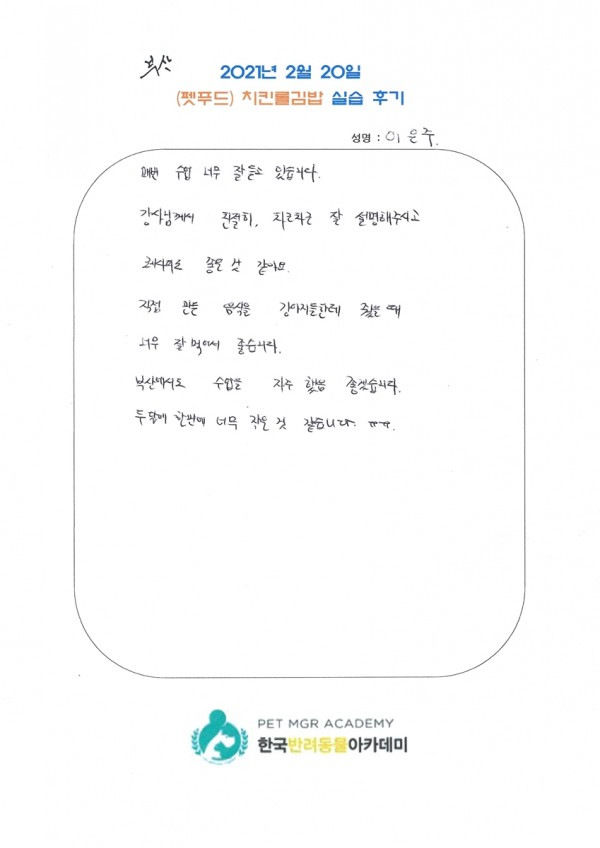 부산
2021년 2월 20일
(펫푸드) 치킨롤김밥 실습 후기
성명 : 이은주.
매번 수업 너무 잘듣고 있습니다.
강사님께서 친절히, 차근차근 잘 설명해주시고
좋은 것 같아요.
직접 만든 음식을 강아지들한테 줬을 때
너무 잘 먹어서 좋습니다.
부산에서도 수업을 자주 했음 좋겠습니다.
두달에 한번에 너무 작은 것 같습니다. ㅠㅠ.
PET MGR ACADEMY
한국반려동물아카데미